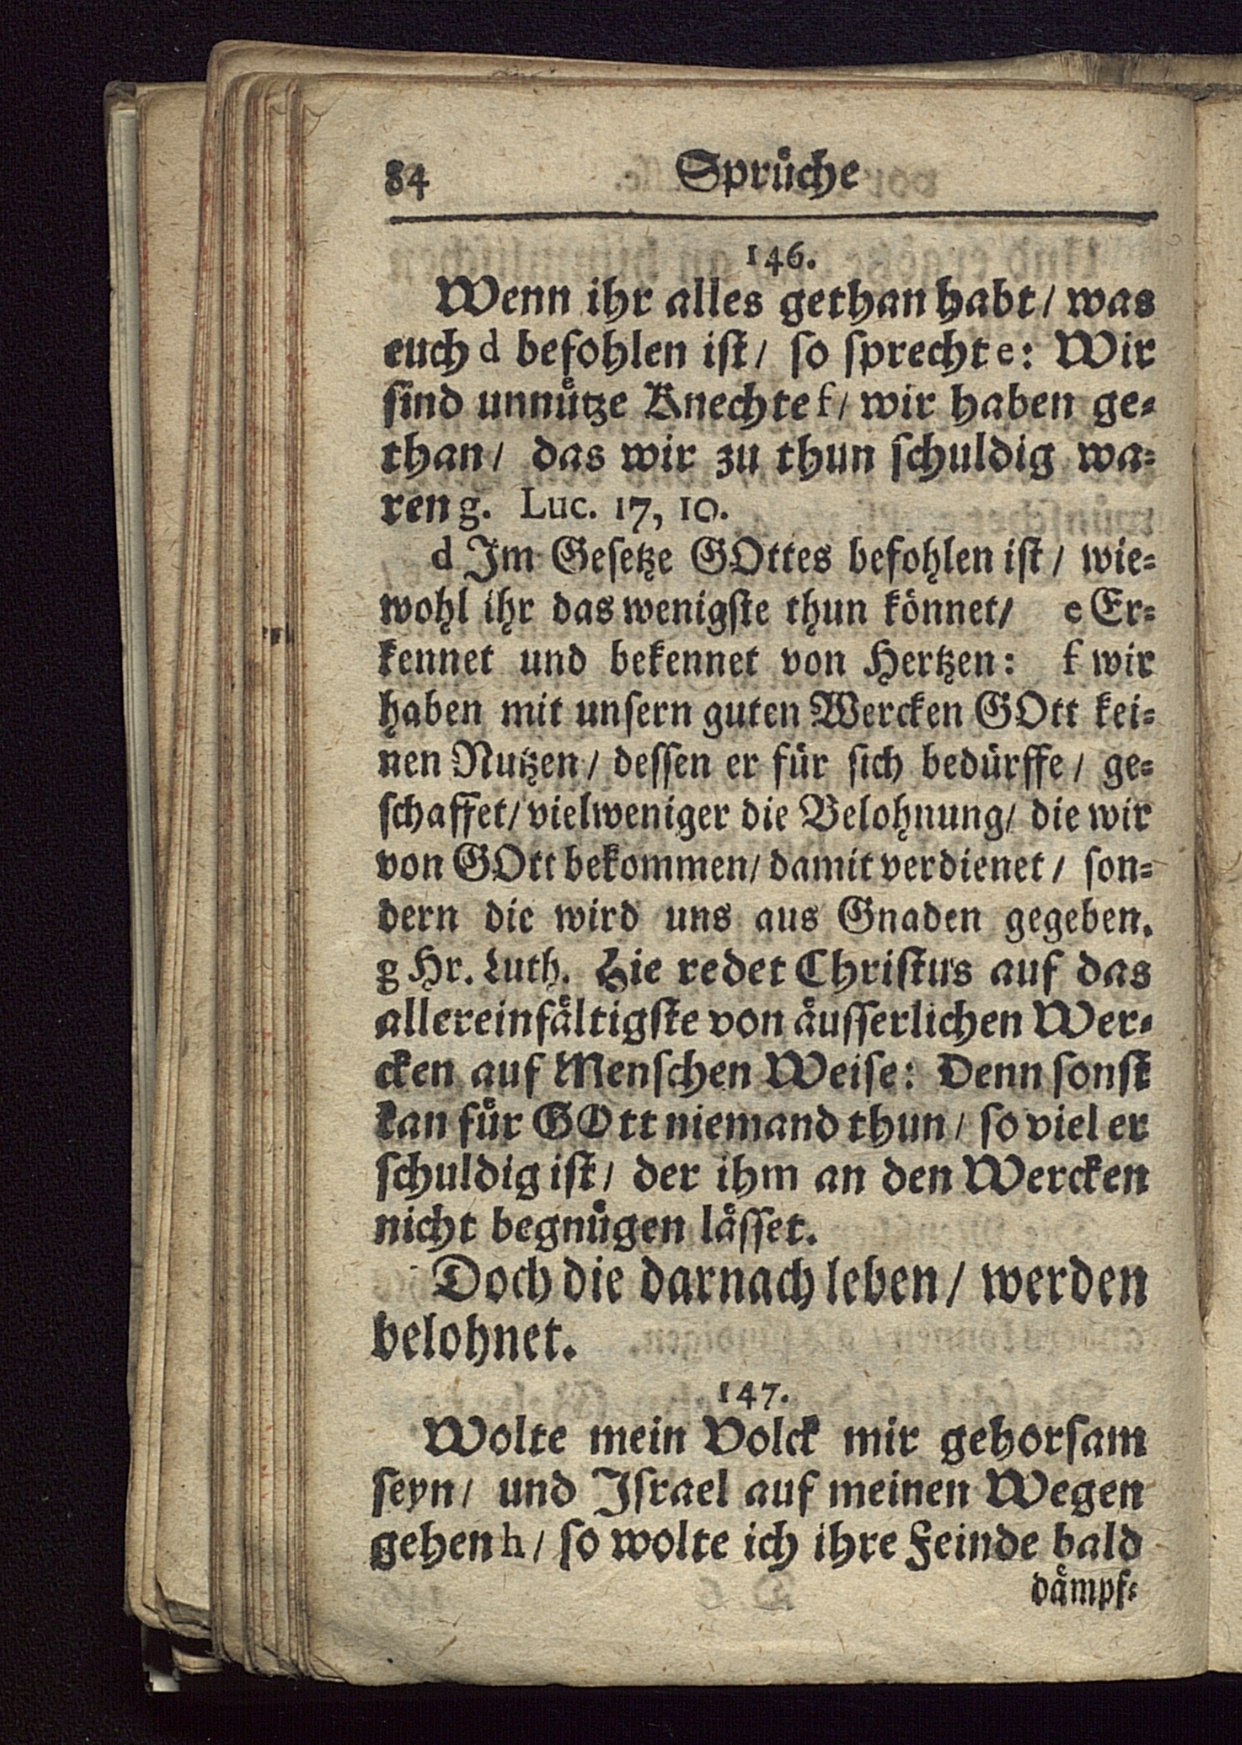 84 Sprüche
146.
Wenn ihr alles gethan habt / was
euch d befohlen ist / so sprecht e: Wir
sind unnütze Knechte f / wir haben ge-
than / das wir zu thun schuldig wa-
ren g. Luc. 17, 10.
d Im Gesetze GOttes befohlen ist / wie-
wohl ihr das wenigste thun könnet / e Er-
kennet und bekennet von Hertzen: f wir
haben mit unsern guten Wercken GOtt kei-
nen Nutzen / dessen er für sich bedürffe / ge-
schaffet / vielweniger die Belohnung / die wir
von GOtt bekommen / damit verdienet / son-
dern die wird uns aus Gnaden gegeben.
g Hr. Luth. Hie redet Christus auf das
allereinfältigste von äusserlichen Wer-
cken auf Menschen Weise: Denn sonst
kan für GOtt niemand thun / so viel er
schuldig ist / der ihm an den Wercken
nicht begnügen lässet.
Doch die darnach leben / werden
belohnet.
147.
Wolte mein Volck mir gehorsam
seyn / und Israel auf meinen Wegen
gehen h / so wolte ich ihre Feinde bald
dämpf-